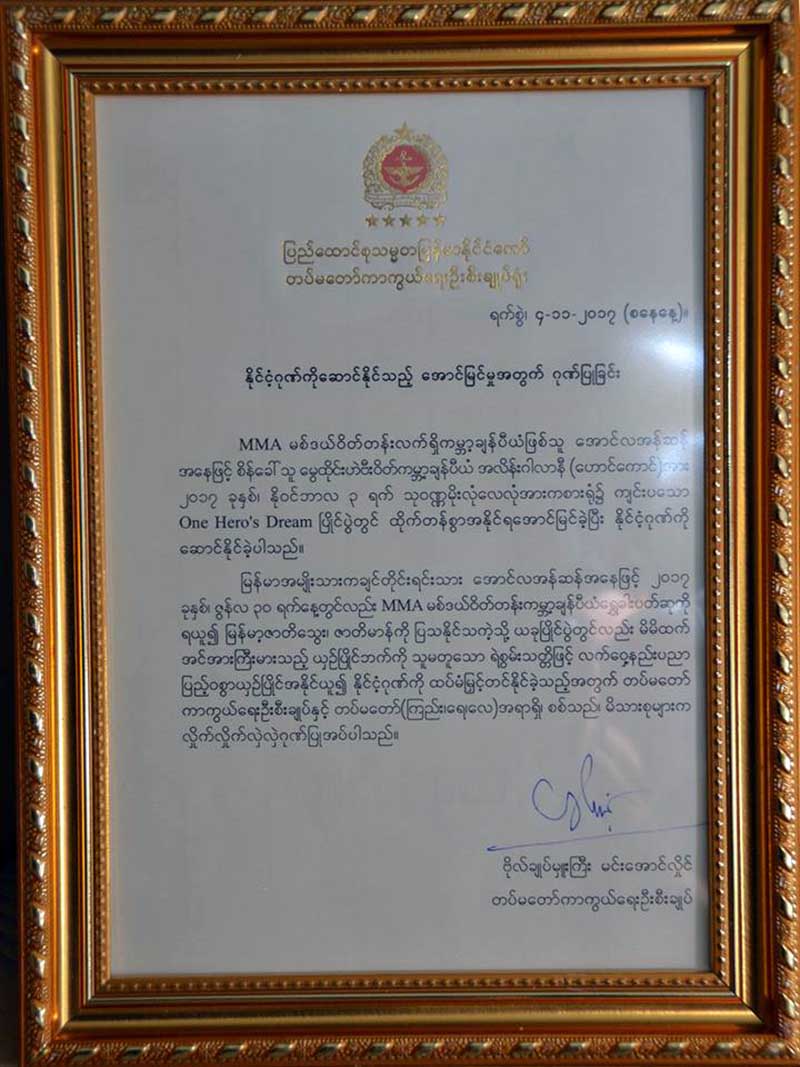 ပြည်ထောင်စုသမ္မတမြန်မာနိုင်ငံတော်
တပ်မတော်ကာကွယ်ရေးဦးစီးချုပ်ရုံး
ရက်စွဲ၊ ၄-၁၁-၂၀၁၇ (စနေနေ့)။
နိုင်ငံ့ဂုဏ်ကိုဆောင်နိုင်သည့် အောင်မြင်မှုအတွက် ဂုဏ်ပြုခြင်း
MMA မစ်ဒယ်ဝိတ်တန်းလက်ရှိကမ္ဘာ့ချန်ပီယံဖြစ်သူ အောင်လအန်ဆန်
အနေဖြင့် စိန်ခေါ်သူ မွေထိုင်းဟဲဗီးဝိတ်ကမ္ဘာ့ချန်ပီယံ အလိန်းဂါလာနီ (ဟောင်ကောင်)အား
၂၀၁၇ ခုနှစ်၊ နိုဝင်ဘာလ ၃ ရက် သုဝဏ္ဏမိုးလုံလေလုံအားကစားရုံ၌ ကျင်းပသော
One Hero's Dream ပြိုင်ပွဲတွင် ထိုက်တန်စွာအနိုင်ရအောင်မြင်ခဲ့ပြီး နိုင်ငံ့ဂုဏ်ကို
ဆောင်နိုင်ခဲ့ပါသည်။
မြန်မာအမျိုးသားကချင်တိုင်းရင်းသား အောင်လအန်ဆန်အနေဖြင့် ၂၀၁၇
ခုနှစ်၊ ဇွန်လ ၃၀ ရက်နေ့တွင်လည်း MMA မစ်ဒယ်ဝိတ်တန်းကမ္ဘာ့ချန်ပီယံရွှေခါးပတ်ဆုကို
ရယူ၍ မြန်မာ့ဇာတိသွေး၊ ဇာတိမာန်ကို ပြသနိုင်သကဲ့သို့ ယခုပြိုင်ပွဲတွင်လည်း မိမိထက်
အင်အားကြီးမားသည့် ယှဉ်ပြိုင်ဘက်ကို သူမတူသော ရဲစွမ်းသတ္တိဖြင့် လက်ဝှေ့နည်းပညာ
ပြည့်ဝစွာယှဉ်ပြိုင်အနိုင်ယူ၍ နိုင်ငံ့ဂုဏ်ကို ထပ်မံမြှင့်တင်နိုင်ခဲ့သည့်အတွက် တပ်မတော်
ကာကွယ်ရေးဦးစီးချုပ်နှင့် တပ်မတော်(ကြည်း၊ရေ၊လေ)အရာရှိ၊ စစ်သည်၊ မိသားစုများက
လှိုက်လှိုက်လှဲလှဲဂုဏ်ပြုအပ်ပါသည်။
ဗိုလ်ချုပ်မှူးကြီး မင်းအောင်လှိုင်
တပ်မတော်ကာကွယ်ရေးဦးစီးချုပ်